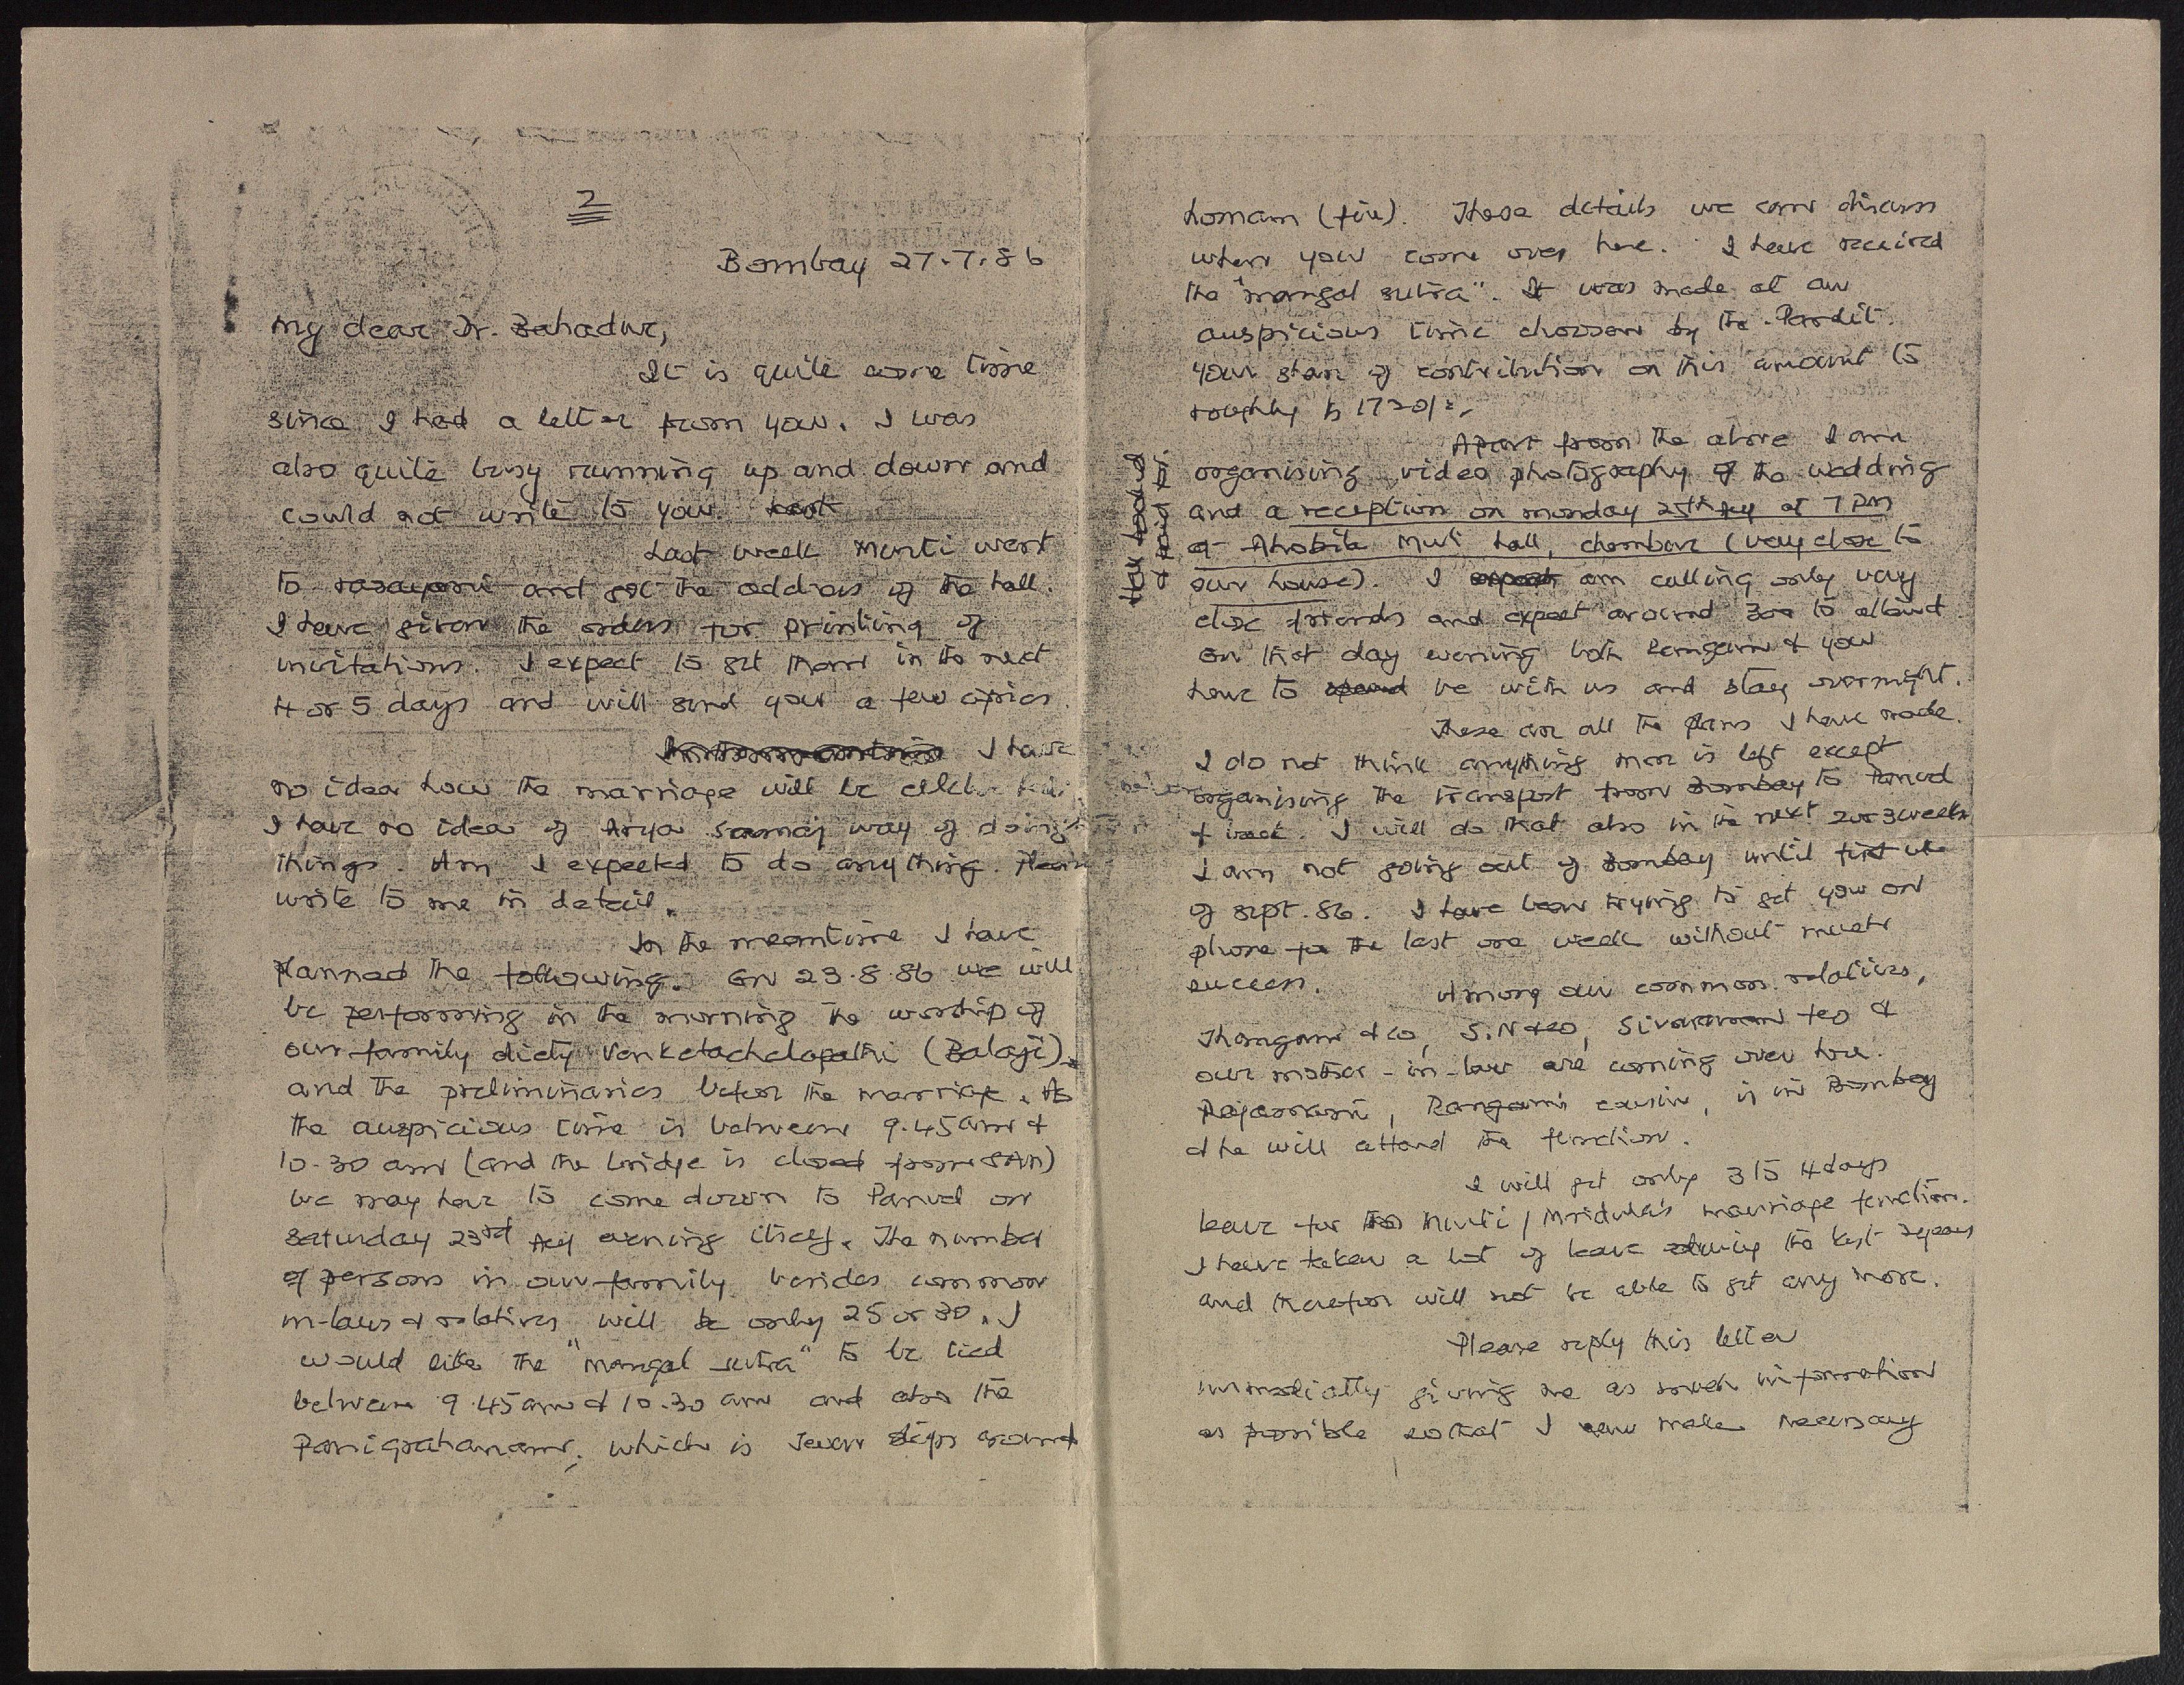 2
Bombay 27.7.86
My dear Dr. Bahadur,
It is quite some time
since I had a letter from you. I was
also quite busy running up and down and
could not write to you.
Last week Murti went
to rasayani and got the address of the hall.
I have given the orders for printing of
invitations. I expect to get them in the next
4 or 5 days and will send you a few copies.
I have
no idea how the marriage will be
I have no idea of Arya Samaj way of doing
things. Am I expected to do anything. Please
write to me in detail.
In the meantime I have
planned the following. On 23.8.86 we will
be performing in the morning the worship of
our family diety Venketachelapathi (Balaji).
and the preliminaries before the marriage. As
the auspicious time is between 9.45 am &
10.30 am (and the bridge is closed from 8AM)
we may have to come down to Panvel on
Saturday 23rd Aug evening itself. The number
of persons in our family besides common
in-laws & relatives will be only 25 or 30. I
would like the "mangal sutra" to be tied
between 9.45 am & 10.30 am and also the
Panigrahanam, which is seven steps around
homam (fire). These details we can discuss
when you come over here. I have received
the "mangal sutra". It was made at an
auspicious time choosen by the Pandit.
Your share of contribution on this amount to
roughly Rs 1720/=.
Apart from the above I am
organising video photography of the wedding
and a reception on monday 25th Aug at 7 PM
at Ahobila Mutt hall, chembur (very close to
our house). I am calling only very
close friends and expect around 300 to attend
on that day evening both Rangam & you
have to be with us and stay overnight.
Hall booked
& paid for.
These are all the plans I have made.
I do not think anything more is left except
organising the transport from Bombay to Panvel
& back. I will do that also in the next 2 or 3 weeks
I am not going out of Bombay until first wk
of sept. 86. I have been trying to get you on
phone for the last one week without much
success.
Among our common relatives,
Thangam & co, S.N & co, Sivaraman & co &
our mother-in-law are coming over here.
Rajamani, Rangam's cousin, is in Bombay
& he will attend the function.
I will get only 3 to 4 days
leave for Murti / Mridula's marriage function.
I have taken a lot of leave during the last 2 years
and therefore will not be able to get any more.
Please reply this letter
immediatly giving me as much information
as possible so that I can make necessary